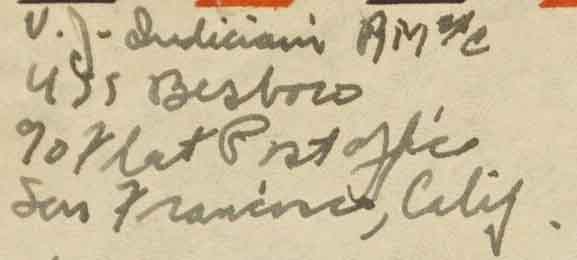 V. J. Indiciani RM 3/c
USS Besboro
c/o Fleet Post office
San Francisco, Calif.